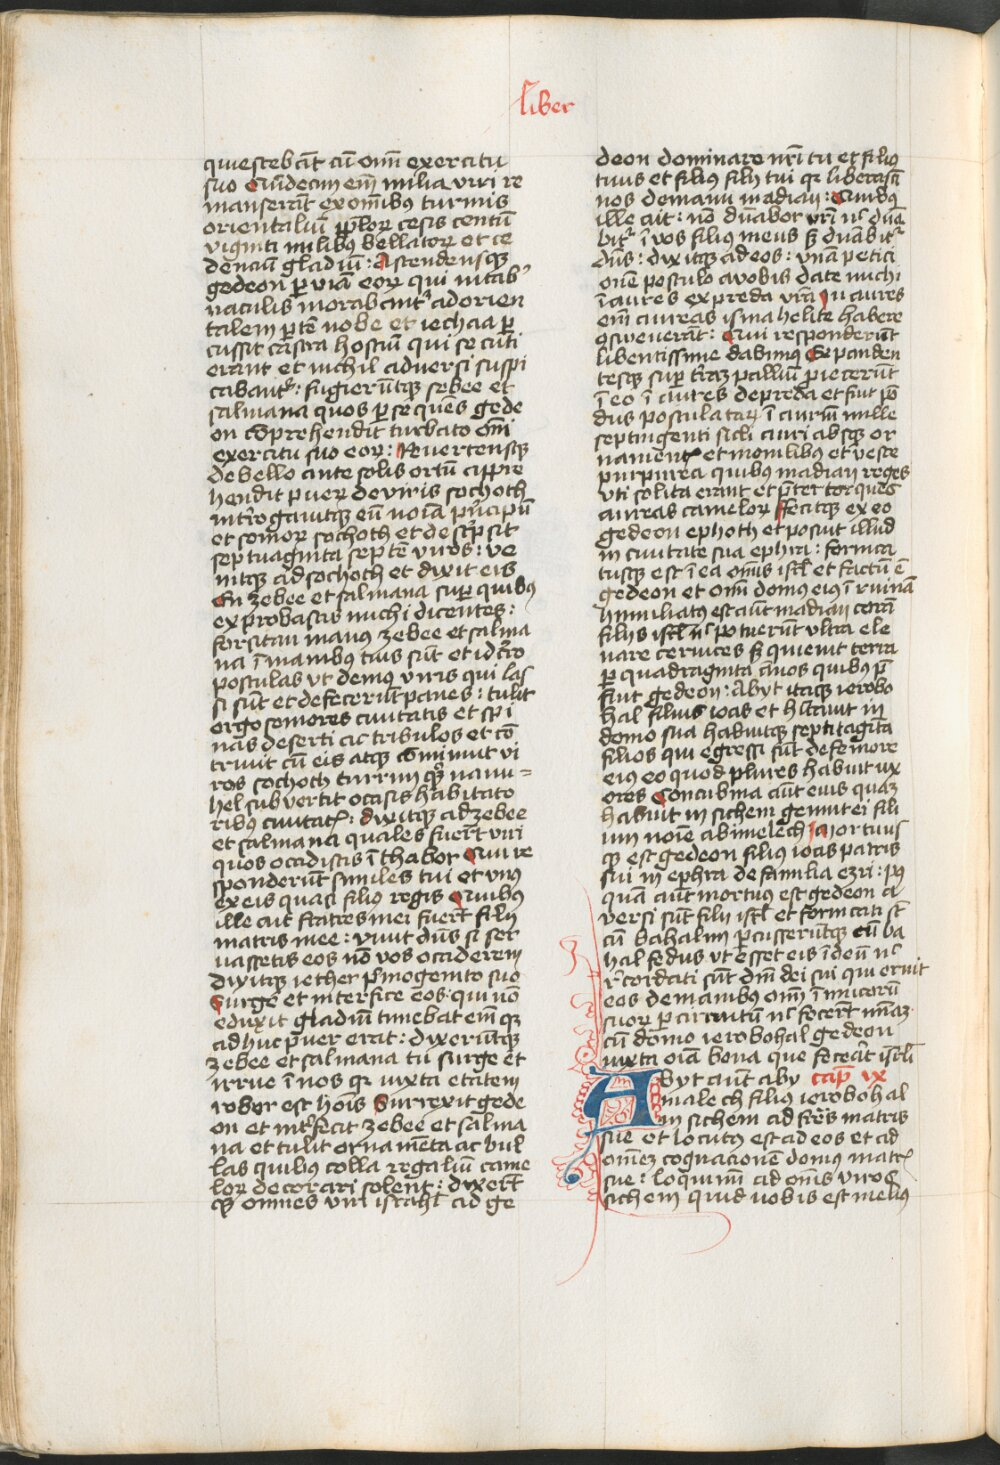 liber
quiescebāt cū om̄i exercitu
suo Quīdecim em̄ milia viri re
manserāt ex om̄ibꝰ turmis
orientaliū pp̄lor̨ cesis centū
viginti milibꝰ bellator̨ et ce
denciū gladiū: Ascendensqꝫ
gedeon ꝑ viā eor̨ qui in tab
naculis morabant̄ ad orien
talem ꝑtē nobe et iechaa ꝑ
cussit castra hostiū qui securi
erant et nichil adversi suspi
cabant̄: fugierūtqꝫ zebee et
salmana quos ꝑsequēs gede
on cōprehendit turbato om̄i
exercitu suo eor̨: Revertensqꝫ
de bello ante solis ortū appre
hendit puer̨ de viris sochoth
introgavitqꝫ eū noīa prīcipū
et senior̨ sochoth et descpsit
septuaginta septē viros: ve
nitqꝫ ad sochoth et dixit eis
En zebee et salmana suꝑ quibꝰ
exprobastis michi dicentes:
forsitan manꝰ zebee et salma
na ī manibꝰ tuis sūt et idcro
postulas ut demꝰ viris qui las
si sūt et defecerūt panes: tulit
ergo seniores civitatis et spi
nas deserti ac tribulos et cō
trivit cū eis atqꝫ cōminuit vi
ros sochoth turrim qꝫ namu=
hel subvertit occisis habitato
ribꝰ civitatꝭ: dixitqꝫ ad zebee
et salmana quales fuerūt viri
quos occidistis ī thabor Qui re
sponderūt similes tui et vnꝰ
ex eis quasi filiꝰ regis Quibꝰ
ille ait fratres mei fuerūt filij
matris mee: vivit dn̄s si ser
vassetis eos nō vos occiderem
dixitqꝫ iether pͥmogenito suo
Surge et interfice eos qui nō
eduxit gladiū timebat em̄ qꝫ
adhuc puer erat: dixerūtqꝫ
zebee et salmana tu surge et
irrue ī nos qꝛ iuxta etatem
robor est hoīs Surrexit gede
on et int̄fecit zebee et salma
na et tulit ornamēta ac bul
las quibꝰ colla regaliū came
lor̨ decorari solent: dixerūt
qꝫ omnes viri israhl̄ ad ge
deon dominare nr̄i tu et filiꝰ
tuus et filiꝰ filij tui qꝛ liberasti
nos de manu madian: Quibꝰ
ille ait: nō dn̄abor vr̄i nͨ dn̄a
bit̄ ī vos filius meus sꝫ dn̄abit̄
dn̄s: dixitqꝫ ad eos: vnā petici
onē postulo a vobis date michi
īaures ex preda vrā In aures
em̄ aureas ismahelite habere
ꝯsueverāt: Qui responderūt
libentissime dabimꝰ Expanden
tesqꝫ suꝑ tr̄aꝫ palliū ꝓiecerūt
ī eo ī aures de preda et fuit pō
dus postulatar̨ ī auriū mille
septingenti sicli auri absqꝫ or
namentꝭ et monilibꝰ et veste
purpurea quibꝰ madian reges
vti soliti erant et p̄ter torques
aureas camelor̨ fecitqꝫ ex eo
gedeon ephoth et posuit illud
in civitate sua ephra: fornica
tusqꝫ est ī ea omīs isrl̄ et factū ē
gedeon et om̄i domui eiꝰ ī ruinā
Humiliatꝰ est aūt madian corā
filijs isrl̄ nͨ potuerūt vltra ele
vare cervices sꝫ quievit terra
ꝑ quadraginta annos quibꝰ p̄
fuit gedeon: Abyt itaqꝫ ierobo
hal filius ioas et h̄itavit in
domo sua habuitqꝫ septuagīta
filios qui egressi sūt de femore
eiꝰ eo quod plures habuit ux
ores Concubina aūt eius quaꝫ
habuit in sichem genuit ei fili
um noīe abimelech Mortuus
qꝫ est gedeon filiꝰ ioas patris
sui in ephra de familia ezri: pꝰ
quā aūt mortuꝰ est gedeon a
versi sūt filij isrl̄ et fornicati st̄
cū bahalim ꝑcusserūtqꝫ cū ba
hal fedus ut esset eis ī deū nͨ
rͨordati sūt dn̄i dei sui qui eruit
eos de manibꝰ om̄i īnimicorū
suor̨ ꝑ circuitū nͨ fecerūt mīaꝫ
cū domo ierobohal gedeon
iuxta oīa bona que fecerat isrl̄i
Abyt aūt aby cap̄ ix
malech filius ierobohal
in sichem ad fr̄es matris
sue et locutꝰ est ad eos et ad
omēꝫ cognacionē domus matꝭ
sue: loquimī ad om̄is viros
sichem quid vobis est meliꝰ